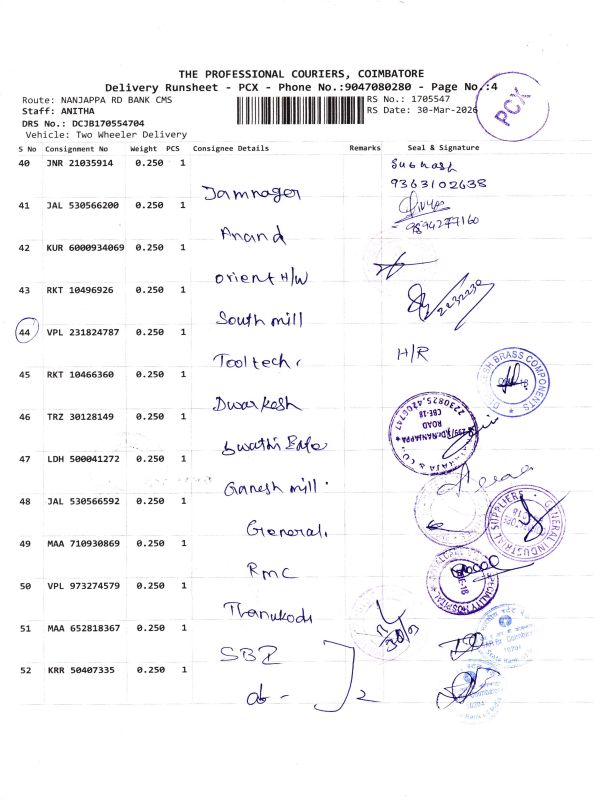 THE PROFESSIONAL COURIERS, COIMBATORE
Delivery Runsheet - PCX - Phone No.:9047080280 - Page No.:4
Route: NANJAPPA RD BANK CMS
RS No.: 1705547
Staff: ANITHA
RS Date: 30-Mar-2026
DRS No.: DCJB170554704
Vehicle: Two Wheeler Delivery
PCX
S No Consignment No Weight PCS Consignee Details Remarks Seal & Signature
40 JNR 21035914 0.250 1
Jamnager
Subhash
9363102638
41 JAL 530566200 0.250 1
Anand
9894277160
42 KUR 6000934069 0.250 1
orient H/W
43 RKT 10496926 0.250 1
South mill
2232230
44 VPL 231824787 0.250 1
Tooltech
H/R
45 RKT 10466360 0.250 1
Dwarkesh
BRASS COMPONENTS
46 TRZ 30128149 0.250 1
Swathi
NANJAPPA
ROAD
CBE-18
2230825,4206747
47 LDH 500041272 0.250 1
Ganesh mill
48 JAL 530566592 0.250 1
General
GENERAL INDUSTRIAL SUPPLIERS
49 MAA 710930869 0.250 1
RMC
HOSPITAL
50 VPL 973274579 0.250 1
Thanukodi
30/3
51 MAA 652818367 0.250 1
SBI
52 KRR 50407335 0.250 1
do - 2